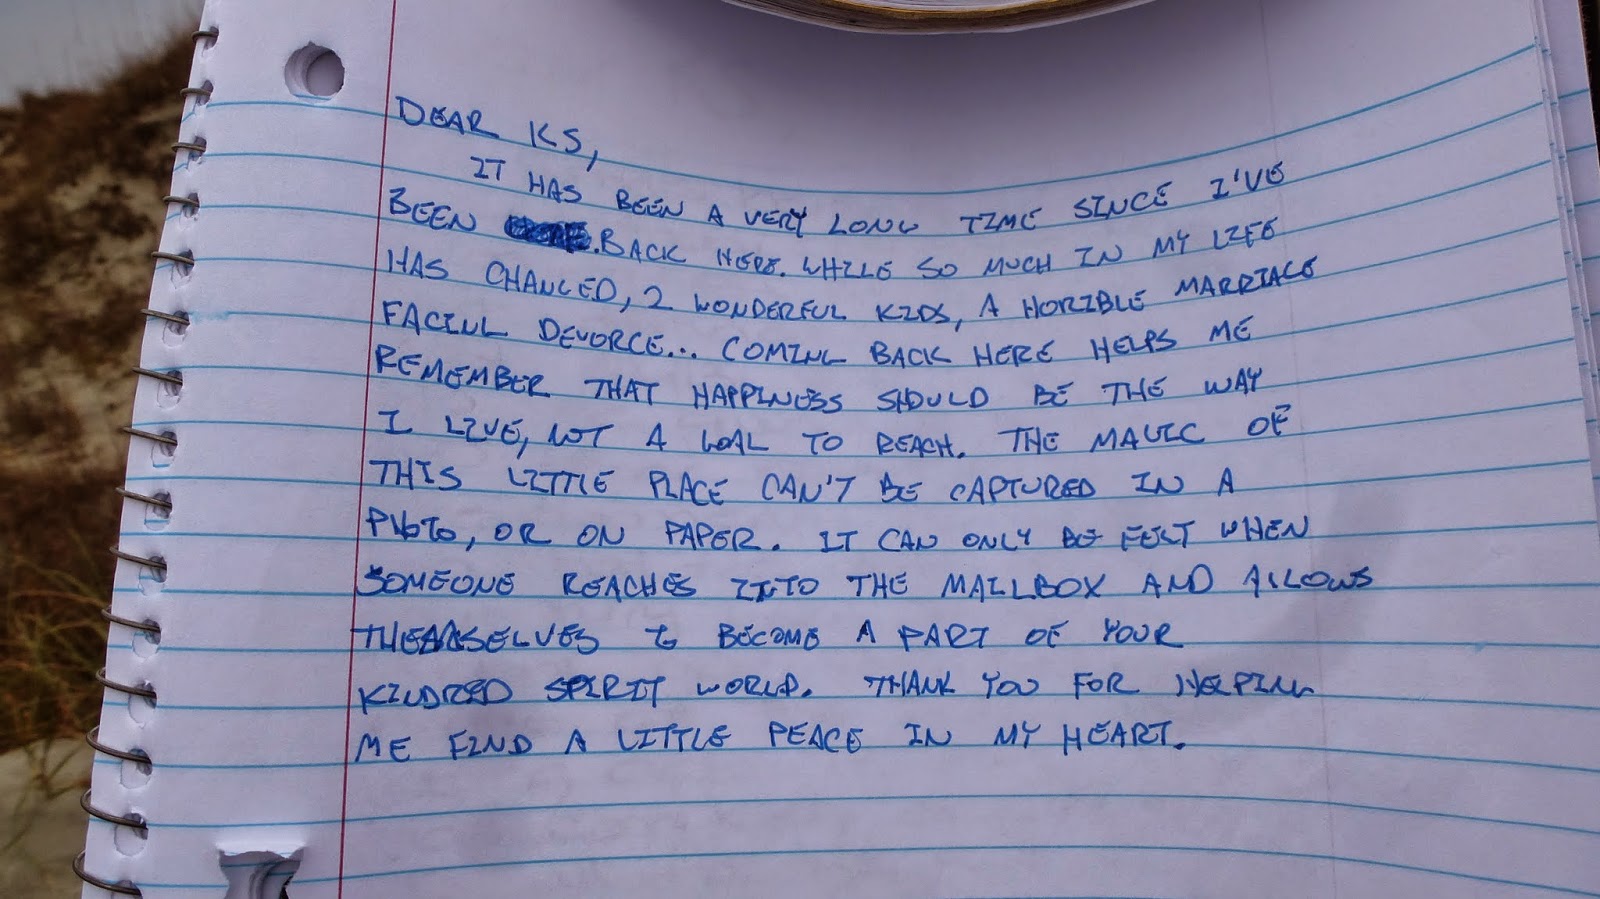 DEAR KS,
IT HAS BEEN A VERY LONG TIME SINCE I'VE
BEEN BACK HERE. WHILE SO MUCH IN MY LIFE
HAS CHANGED, 2 WONDERFUL KIDS, A HORIBLE MARRIAGE
FACING DEVORCE... COMING BACK HERE HELPS ME
REMEMBER THAT HAPPINESS SHOULD BE THE WAY
I LIVE, NOT A GOAL TO REACH. THE MAGIC OF
THIS LITTLE PLACE CAN'T BE CAPTURED IN A
PHOTO, OR ON PAPER. IT CAN ONLY BE FELT WHEN
SOMEONE REACHES INTO THE MAILBOX AND ALLOWS
THEMSELVES TO BECOME A PART OF YOUR
KINDRED SPIRIT WORLD. THANK YOU FOR HELPING
ME FIND A LITTLE PEACE IN MY HEART.